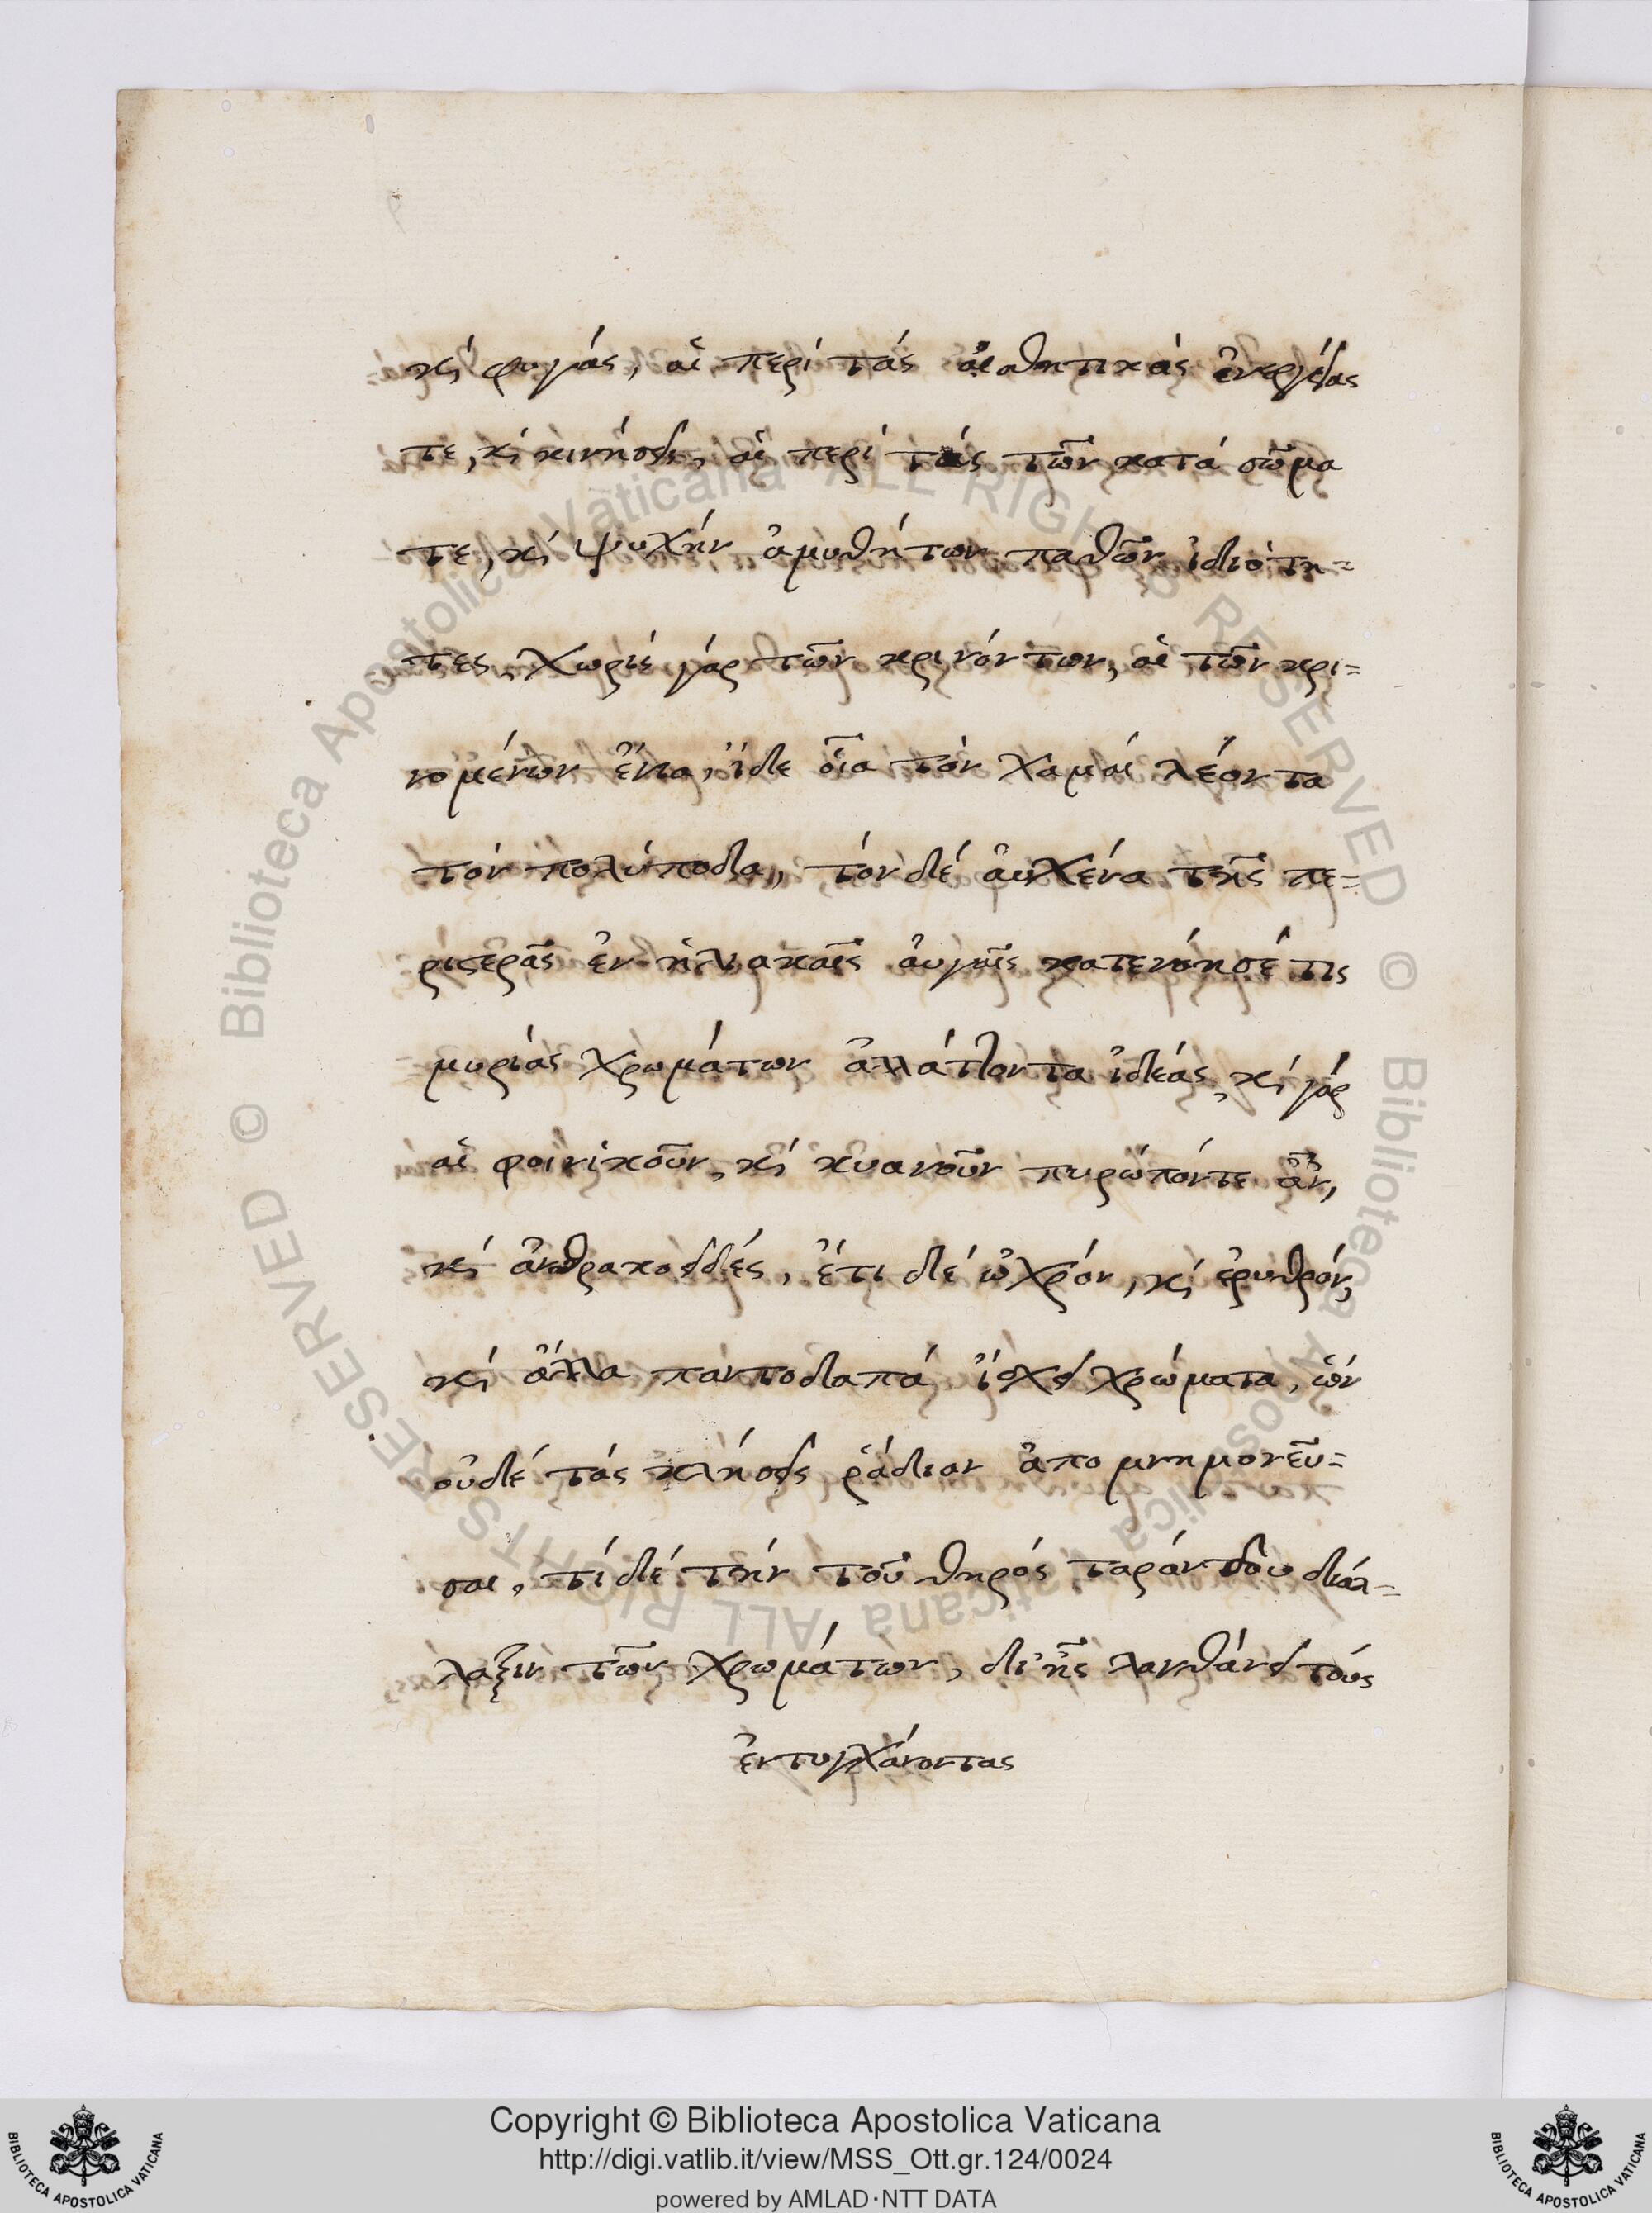 κ φυγάς, αἱ περὶ τὰς αἰσθητικὰς ἐνεργείας
τε, κ κινήσεις, αἱ περὶ τὰς τῶν κατὰ σῶμα
τε, κ ψυχὴν ἀμυθήτων παθῶν ἰδιότη=
τες, χωρὶς γὰρ τῶν κρινόντων, αἱ τῶν κρι=
νομένων ἔνια, ἴδε οἷα τὸν χαμαὶ λέοντα
τὸν πολύποδα, τὸν δὲ αὐχένα τῆς πε=
ριστερᾶς ἐν ἡλιακαῖς αὐγαῖς κατενόησέ τις
μυρίας χρωμάτων ἀλλάττοντα ἰδέας, κ γὰρ
αἱ φοινικοῦν, κ κυανοῦν πυρώπόντε
κ ἀνθρακοειδές, ἔτι δὲ ὠχρόν, κ ἐρυθρόν,
κ ἄλλα παντοδαπά ἴσχει χρώματα, ὧν
οὐδὲ τὰς κλήσεις ῥάδιον ἀπομνημονεῦ=
σαι, τί δὲ τὴν τοῦ θηρὸς ταράνδου διάλ=
λαξιν τῶν χρωμάτων, δι' ἧς λανθάνει τοὺς
ἐντυγχάνοντας
© Biblioteca Apostolica Vaticana ALL RIGHTS RESERVED © Biblioteca Apostolica Vaticana ALL RIGHTS RESERVED
BIBLIOTECA APOSTOLICA VATICANA
Copyright © Biblioteca Apostolica Vaticana
http://digi.vatlib.it/view/MSS_Ott.gr.124/0024
powered by AMLAD·NTT DATA
BIBLIOTECA APOSTOLICA VATICANA